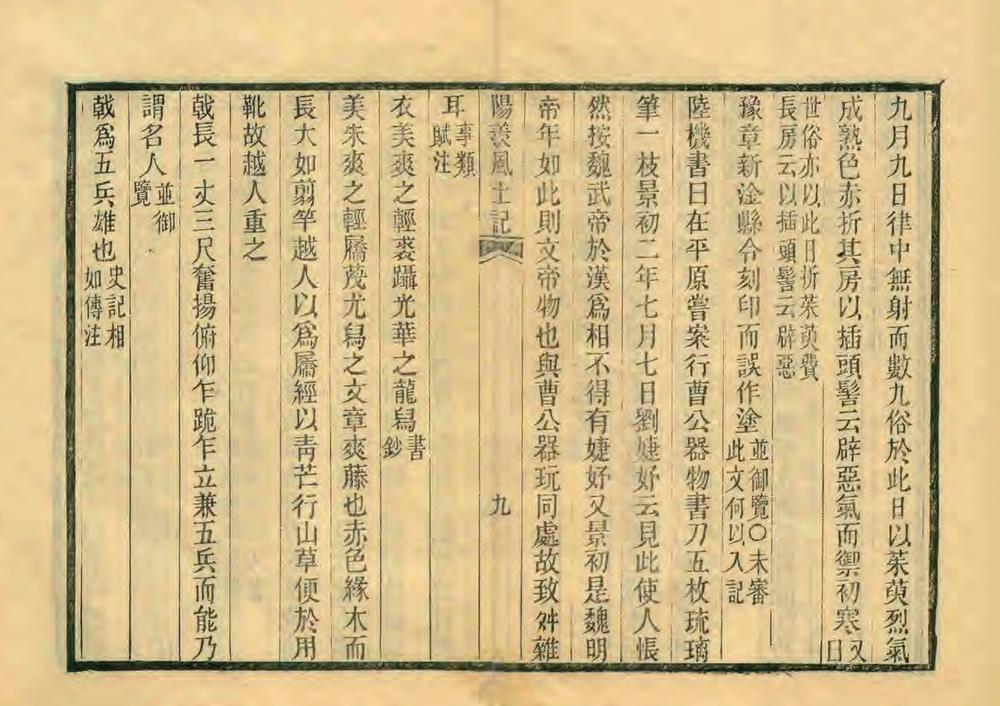 九月九日律中無射而數九俗於此日以茱萸烈氣
成熟色赤折其房以插頭髻云辟惡氣而禦初寒又曰
世俗亦以此日折茱萸費
長房云以插頭髻云辟惡
豫章新淦縣令刻印而誤作塗並御覽〇未審此文何以入記
陸機書曰在平原嘗案行曹公器物書刀五枚琉璃
筆一枝景初二年七月七日劉婕妤云見此使人悵
然按魏武帝於漢爲相不得有婕妤又景初是魏明
帝年如此則文帝物也與曹公器玩同處故致舛雜
陽羨風土記
九
耳事類賦注
衣美爽之輕裘躡光華之龍舄書鈔
美朱爽之輕屩茂尤舄之文章爽藤也赤色緣木而
長大如翦竿越人以爲屩經以靑芒行山草便於用
靴故越人重之
戟長一丈三尺奮揚俯仰乍跪乍立兼五兵而能乃
謂名人並御覽
戟爲五兵雄也史記相如傳注